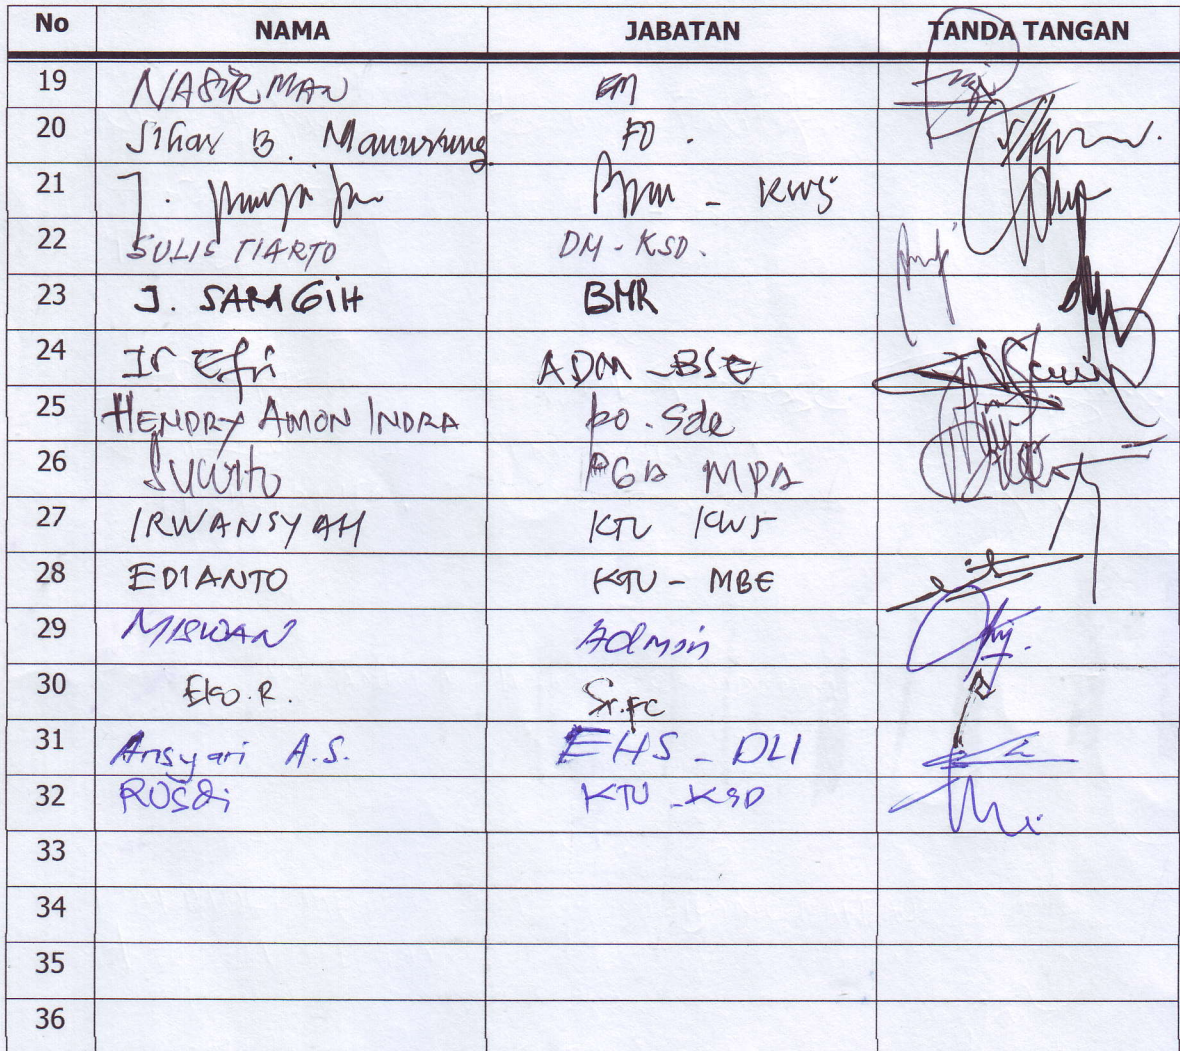 No NAMA JABATAN TANDA TANGAN
19 NASIRMAN EM
20 Sihar B. Manurung FD.
21 J. - KWS
22 SULISTIARTO DM-KSD.
23 J. SARAGIH BHR
24 Ir Efri ADM-BSE
25 HENDRY AMON INDRA
26 Sucipto MPA
27 IRWANSYAH KTU KWS
28 EDIANTO KTU - MBE
29 MISWAN Admin
30 Eko.R. Sr.FC
31 Ansyari A.S. EHS - DLI
32 ROSdi KTU - KSD
33
34
35
36